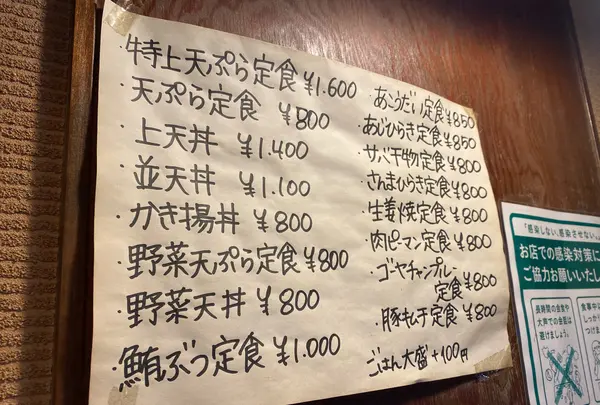 ・特上天ぷら定食 ¥1.600
・天ぷら定食 ¥800
・上天丼 ¥1.400
・並天丼 ¥1.100
・かき揚丼 ¥800
・野菜天ぷら定食¥800
・野菜天丼 ¥800
・鮪ぶつ定食¥1.000
・あこうだい定食¥850
・あじひらき定食¥850
・サバ干物定食¥800
・さんまひらき定食¥800
・生姜焼定食¥800
・肉ピーマン定食¥800
・ゴーヤチャンプルー
定食¥800
・豚キムチ定食¥800
ごはん大盛+100円
「感染しない、感染させない。」
お店での感染対策に
ご協力お願いいたし
長時間の会食や
大声での会話は
避けましょう。
食事中